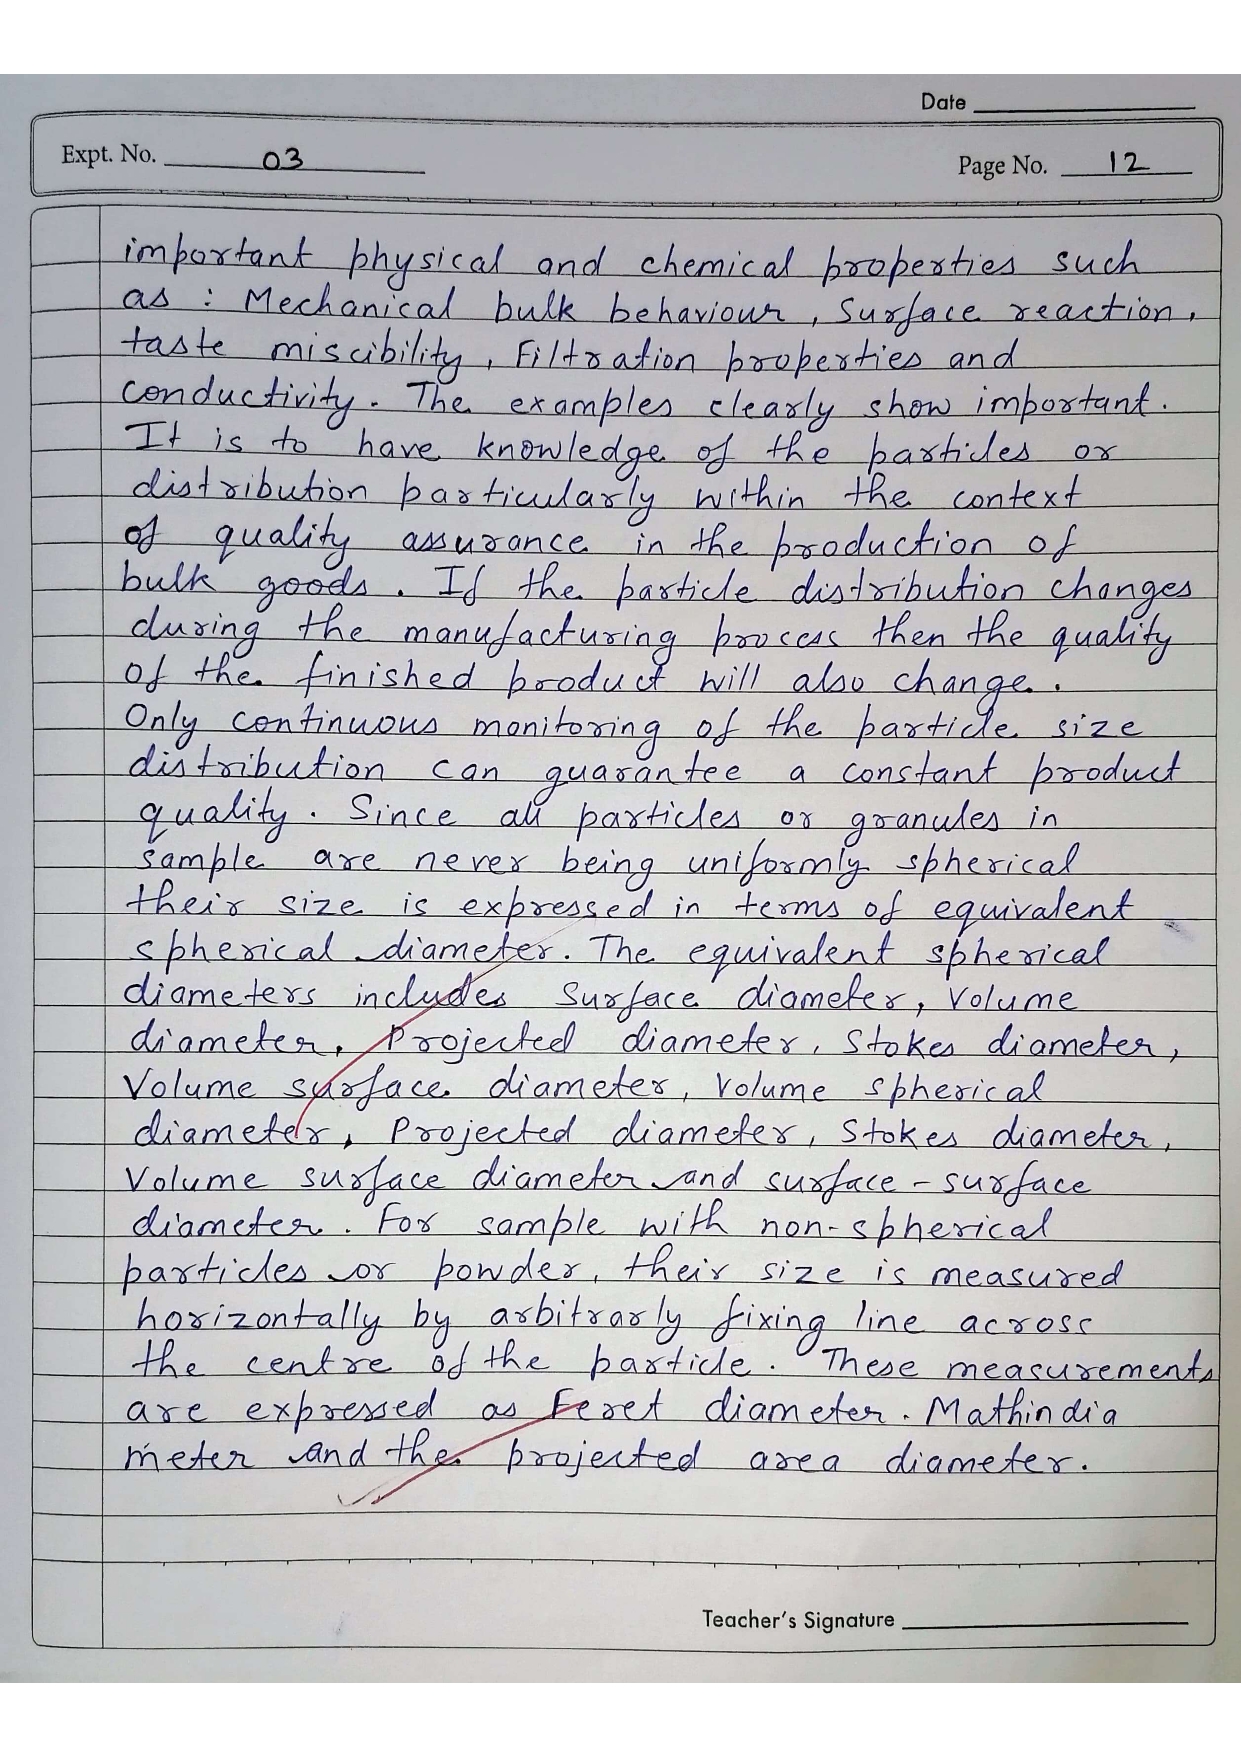 Date
Expt. No. 03
Page No. 12
important physical and chemical properties such
as : Mechanical bulk behaviour, Surface reaction,
taste miscibility, Filtration properties and
conductivity. The examples clearly show important.
It is to have knowledge of the particles or
distribution particularly within the context
of quality assurance in the production of
bulk goods. If the particle distribution changes
during the manufacturing process then the quality
of the finished product will also change.
Only continuous monitoring of the particle size
distribution can guarantee a constant product
quality. Since all particles or granules in
sample are never being uniformly spherical
their size is expressed in terms of equivalent
spherical diameter. The equivalent spherical
diameters includes Surface diameter, Volume
diameter, Projected diameter, Stokes diameter,
Volume surface diameter, Volume spherical
diameter, Projected diameter, Stokes diameter,
Volume surface diameter and surface-surface
diameter. For sample with non-spherical
particles or powder, their size is measured
horizontally by arbitrarly fixing line across
the centre of the particle. These measurements
are expressed as Feret diameter. Mathindia
meter and the projected area diameter.
Teacher's Signature